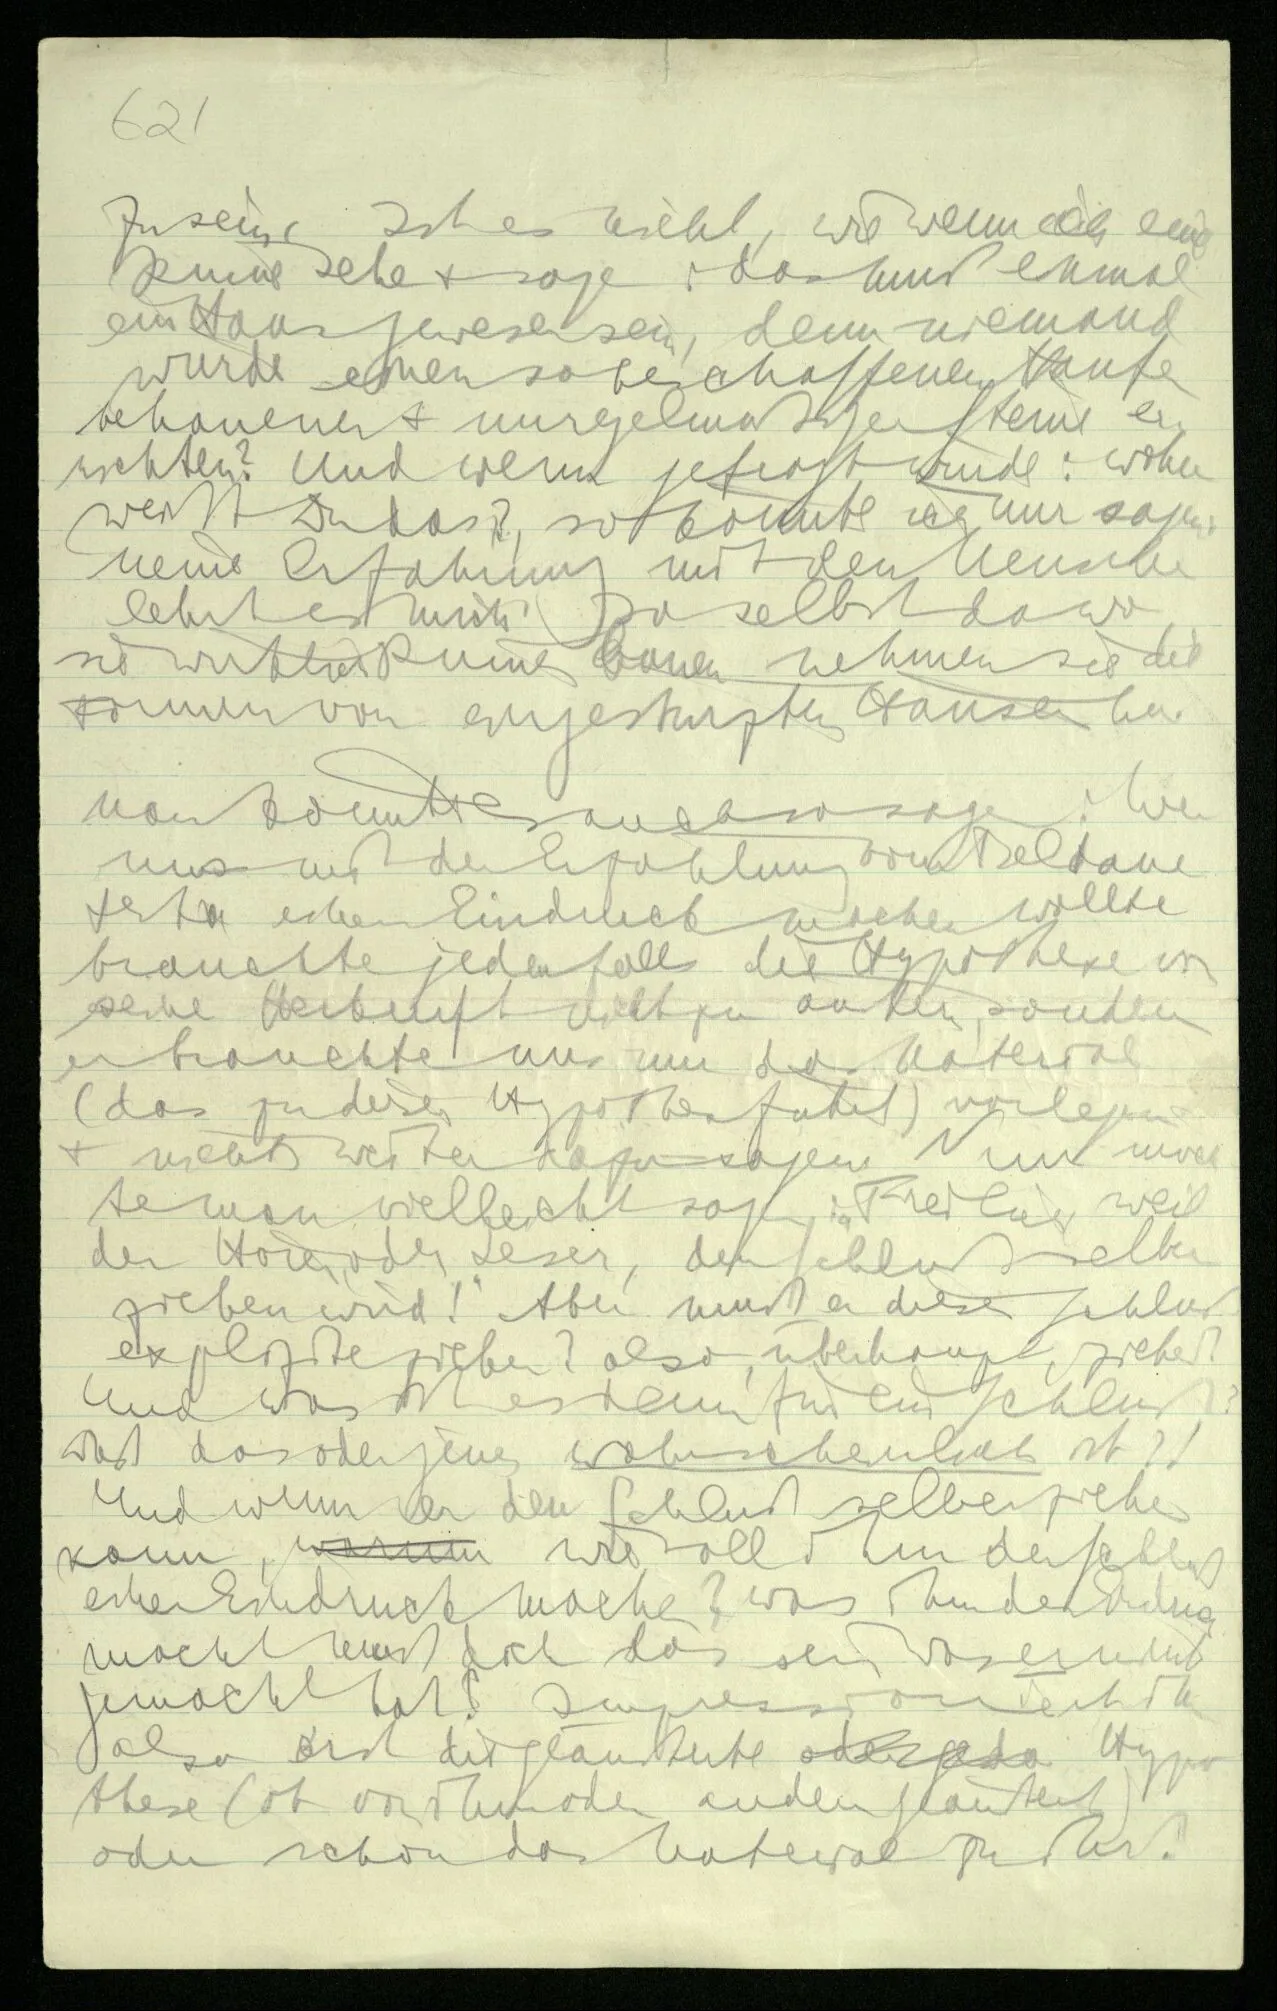 621
zu sein. Ist es nicht, wie wenn ich eine
Ruine sehe & sage: das muß einmal
ein Haus gewesen sein, denn niemand
würde einen so beschaffenen Haufen
behauener & unregelmäßiger Steine er
richten? Und wenn gefragt würde: woher
weißt Du das?, so könnte ich nur sagen:
meine Erfahrung mit den Menschen
lehrt es mich. Ja selbst da wo
sie wirklich Ruinen bauen, nehmen sie die
Formen von eingestürzten Häusern her.
Man könnte es auch so sagen: Wer
uns mit der Erzählung vom Beltane
fest einen Eindruck machen wollte
brauchte jedenfalls die Hypothese von
seiner Herkunft nicht zu äußern, sondern
er brauchte uns nur das Material
(das zu dieser Hypothese führt) vorlegen
& nichts weiter dazu sagen. Nun möch
te man vielleicht sagen: „Freilich, weil
der Hörer, oder Leser, den Schluß selber
ziehen wird!" Aber muß er diesen Schluß
explizite ziehen? also, überhaupt, ziehen?
Und was ist es denn für ein Schluß?
Daß das oder jenes wahrscheinlich ist?!
Und wenn er den Schluß selber ziehen
kann, warum wie soll ihm der Schluß
einen Eindruck machen? was ihm den Eindruck
macht muß doch das sein was er nicht
gemacht hat! Impressioniert ihn
also erst die geäußerte Hypo
these (ob von ihm oder andern geäußert)
oder schon das Material zu ihr?